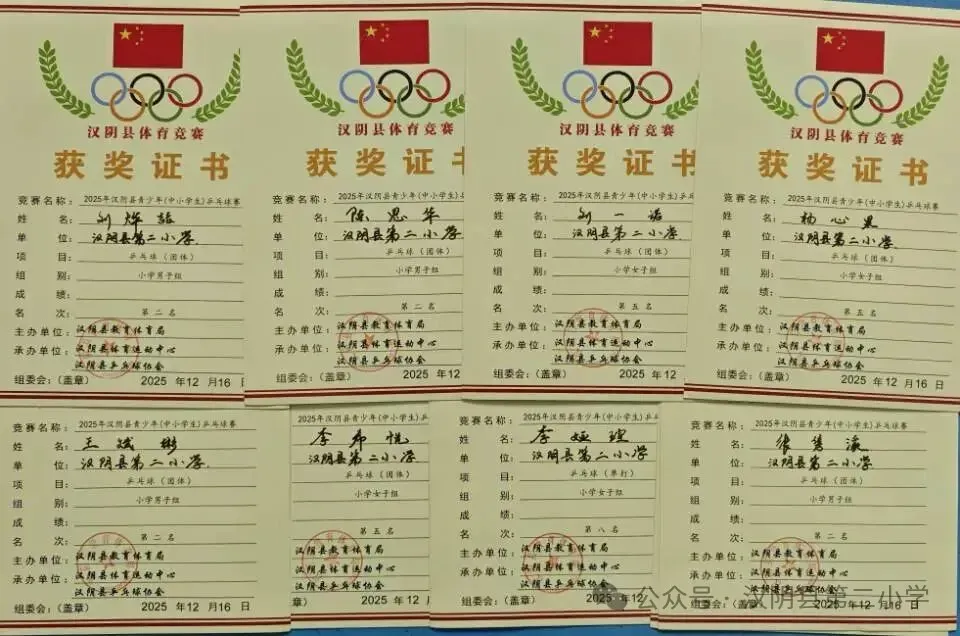 汉阴县体育竞赛
获奖证书
竞赛名称：2025年汉阴县青少年(中小学生)乒乓球赛
姓名：刘烨
单位：汉阴县第二小学
项目：乒乓球（团体）
组别：小学男子组
成绩：
名次：第二名
主办单位：汉阴县教育体育局
承办单位：汉阴县体育运动中心
汉阴县乒乓球协会
组委会：（盖章） 2025 年12 月16 日
汉阴县体育竞赛
获奖证书
竞赛名称：2025年汉阴县青少年(中小学生)乒
姓名：陈思华
单位：汉阴县第二小学
项目：乒乓球（团体）
组别：小学男子组
成绩：
名次：第二名
主办单位：汉阴县教育体育局
承办单位：汉阴县体育运动中心
汉阴县乒乓球协会
组委会：（盖章） 2025 年12
汉阴县体育竞赛
获奖证书
竞赛名称：2025年汉阴县青少年(中小学生)乒乓球
姓名：刘一诺
单位：汉阴县第二小学
项目：乒乓球（团体）
组别：小学女子组
成绩：
名次：第五名
主办单位：汉阴县教育体育局
承办单位：汉阴县体育运动中心
汉阴县乒乓球协会
组委会：（盖章） 2025 年12
汉阴县体育竞赛
获奖证书
竞赛名称：2025年汉阴县青少年(中小学生)乒乓球赛
姓名：杨心
单位：汉阴县第二小学
项目：乒乓球（团体）
组别：小学女子组
成绩：
名次：第五名
主办单位：汉阴县教育体育局
承办单位：汉阴县体育运动中心
汉阴县乒乓球协会
组委会：（盖章） 2025 年12 月16日
竞赛名称：2025年汉阴县青少年(中小学生)乒乓球赛
姓名：王斌彬
单位：汉阴县第二小学
项目：乒乓球（团体）
组别：小学男子组
成绩：
名次：第二名
主办单位：汉阴县教育体育局
承办单位：汉阴县体育运动中心
汉阴县乒乓球协会
组委会：（盖章） 2025 年12 月16 日
2025年汉阴县青少年(中小学生)乒
李希悦
汉阴县第二小学
乒乓球（团体）
小学女子组
第五名
汉阴县教育体育局
汉阴县体育运动中心
汉阴县乒乓球协会
章） 2025 年12
竞赛名称：2025年汉阴县青少年(中小学生)乒乓球
姓名：李
单位：汉阴县第二小学
项目：乒乓球（单打）
组别：小学女子组
成绩：
名次：第八名
主办单位：汉阴县教育体育局
承办单位：汉阴县体育运动中心
汉阴县乒乓球协会
组委会：（盖章） 2025 年12
竞赛名称：2025年汉阴县青少年(中小学生)乒乓球赛
姓名：张
单位：汉阴县第二小学
项目：乒乓球（团体）
组别：小学男子组
成绩：
名次：第二名
主办单位：汉阴县教育体育局
承办单位：汉阴县体育运动中心
汉阴县乒乓球协会
组委会：（盖章） 2025 年12 月16 日
公众号·汉阴县第二小学